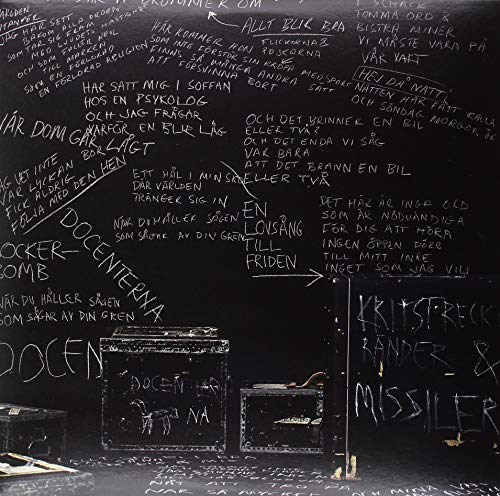 KOMMER OM
ALLT BLIR BRA
FLICKORNA &
POJKORNA
I SCHACK
TOMMA ORD &
BISTRA MINER
VI MÅSTE VARA PÅ
VÅR VAKT
HEJ DÅ NATT!
NATTEN HAR FÅTT KALLA
OCH SÖNDAG MORGON ÄR
VÄRLDEN
JAG HAR SETT
BAKOM STILLA
SOM TAR SIG FRAM
MED LJUDET
OCH SOM FALLER NER
TILL MARKEN
SOM EN FÖRLORAD
EN FÖRLORAD RELIGION
HÄR KOMMER HON
SOM INTE FÖRSTÅR SIN KROPP MED SPORT
FINNS SÅ MÅNGA ANDRA SÄTT
ATT FÖRSVINNA BORT
HAR SATT MIG I SOFFAN
HOS EN PSYKOLOG
OCH JAG FRÅGAR
VARFÖR EN BLIR LÅG
OCH DET BRINNER EN BIL
ELLER TVÅ?
OCH DET ENDA VI SÅG
VAR BARA
ATT DET BRANN EN BIL
ELLER TVÅ
NÄR DOM GÅR
LÅGT
JAG VET INTE
VAR LYCKAN
FICK ALDRIG
FÖLJA MED DEN HEN
ETT HÅL I MIN SKO
DÄR VÄRLDEN
TRÄNGER SIG IN
NÄR DU HÅLLER SÅGEN
SOM SÅGAR AV DIN GREN
EN
LOVSÅNG
TILL
FRIDEN
DET HÄR ÄR INGA ORD
SOM ÄR NÖDVÄNDIGA
FÖR DIG ATT HÖRA
INGEN ÖPPEN DÖRR
TILL MITT INRE
INGET SOM JAG VILL
DOCENTERNA
OCKER-
BOMB
NÄR DU HÅLLER SÅGEN
SOM SÅGAR AV DIN GREN
DOCEN
DOCENTER
NA
KRITSTRECK
RÄNDER &
MISSILER